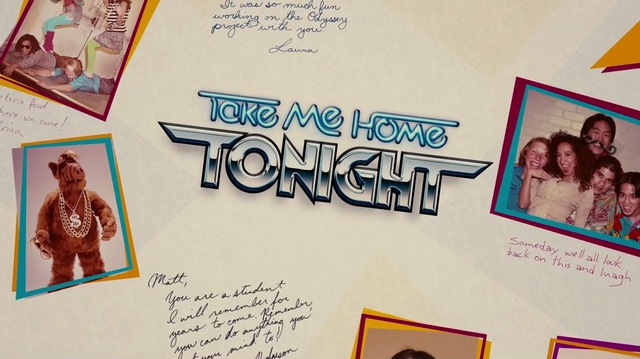 It was so much fun
working on the Odyssey
project with you
Laura
Take Me Home
TONIGHT
teria food
here we come!
rian
$
Someday we'll all look
back on this and luagh
Matt,
You are a student
I will remember for
years to come. Remember
you can do anything you
your mind to!